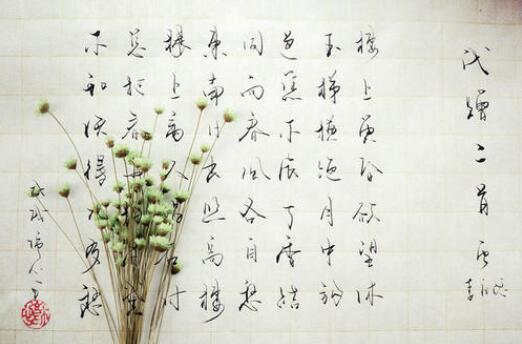 代贈二首
楼上黄昏欲望休
玉梯横绝月中钩
芭蕉不展丁香结
同向春风各自愁
東南日出照高楼
楼上离人唱石州
总把春山
不知供得几多愁